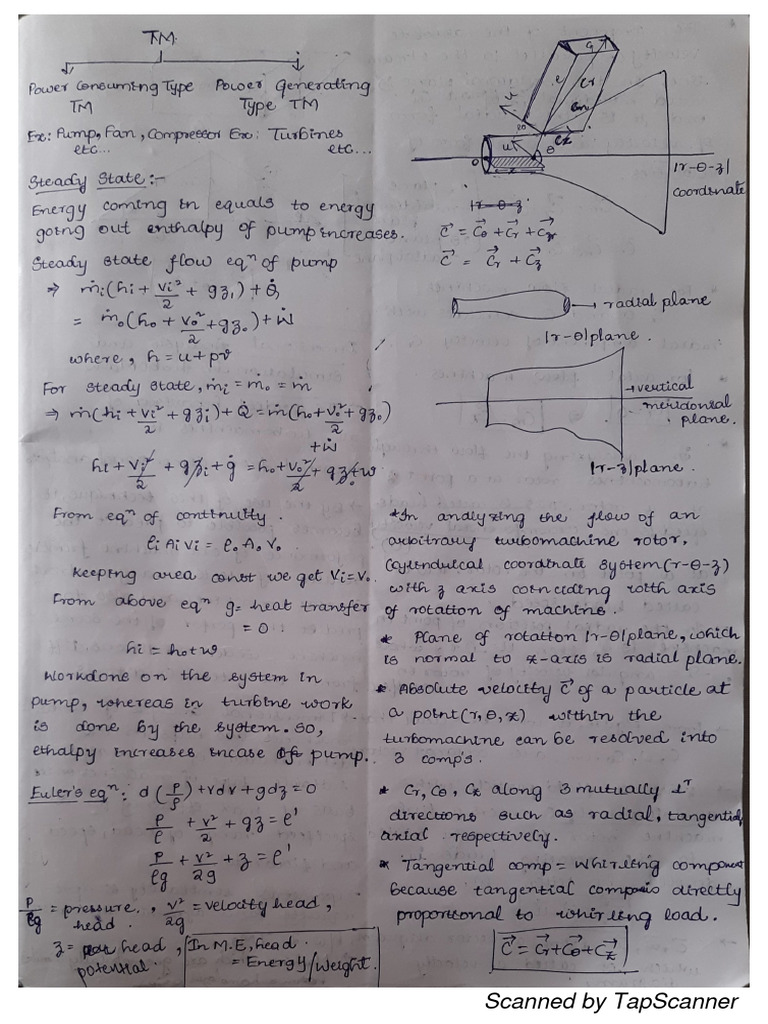 TM.
Power Consuming Type TM
Power Generating Type TM
Ex: Pump, Fan, Compressor etc...
Ex: Turbines etc...
Steady State:-
Energy coming in equals to energy
going out enthalpy of pump increases.
Steady state flow eqⁿ of pump
⇒ ṁi(hi + Vi²/2 + gzi) + Q̇
= ṁo(ho + Vo²/2 + gzo) + Ẇ
where, h = u + pv
For steady state, ṁi = ṁo = ṁ
⇒ ṁ(hi + Vi²/2 + gzi) + Q̇ = ṁ(ho + Vo²/2 + gzo)
+ Ẇ
hi + Vi²/2 + gzi + q̇ = ho + Vo²/2 + gzo + w
From eqⁿ of continuity.
ρi Ai Vi = ρo Ao Vo
Keeping area const we get Vi = Vo.
From above eqⁿ q = heat transfer
= 0.
hi = ho + w
Workdone on the system in
pump, whereas in turbine work
is done by the system. so,
ethalpy increases incase of pump.
Euler's eqⁿ: d(P/ρ) + vdv + gdz = 0
P/ρ + v²/2 + gz = e'
P/ρg + v²/2g + z = e'
P/ρg = pressure head., v²/2g = velocity head,
z = head, potential.
In M.E, head
= Energy/Weight.
e
Cr
Cm
Cz
u
θ
|r-θ-z|
coordinate
|r-θ-z
C⃗ = C⃗θ + C⃗r + C⃗z
C⃗ = C⃗r + C⃗z
→ radial plane
|r-θ|plane.
→ vertical
meridonial
plane.
|r-z|plane.
*In analyzing the flow of an
arbitrary turbomachine rotor,
Cylindulcal coordinate system (r-θ-z)
with z axis coinciding with axis
of rotation of machine.
* Plane of rotation |r-θ|plane, which
is normal to z-axis is radial plane.
* Absolute velocity C⃗ of a particle at
a point (r, θ, z) within the
turbomachine can be resolved into
3 comp's.
* Cr, Cθ, Cz along 3 mutually ⊥ʳ
directions such as radial, tangential,
axial respectively.
* Tangential comp = Whirling component
because tangential comp is directly
proportional to whirling load.
C⃗ = C⃗r + C⃗θ + C⃗z
Scanned by TapScanner